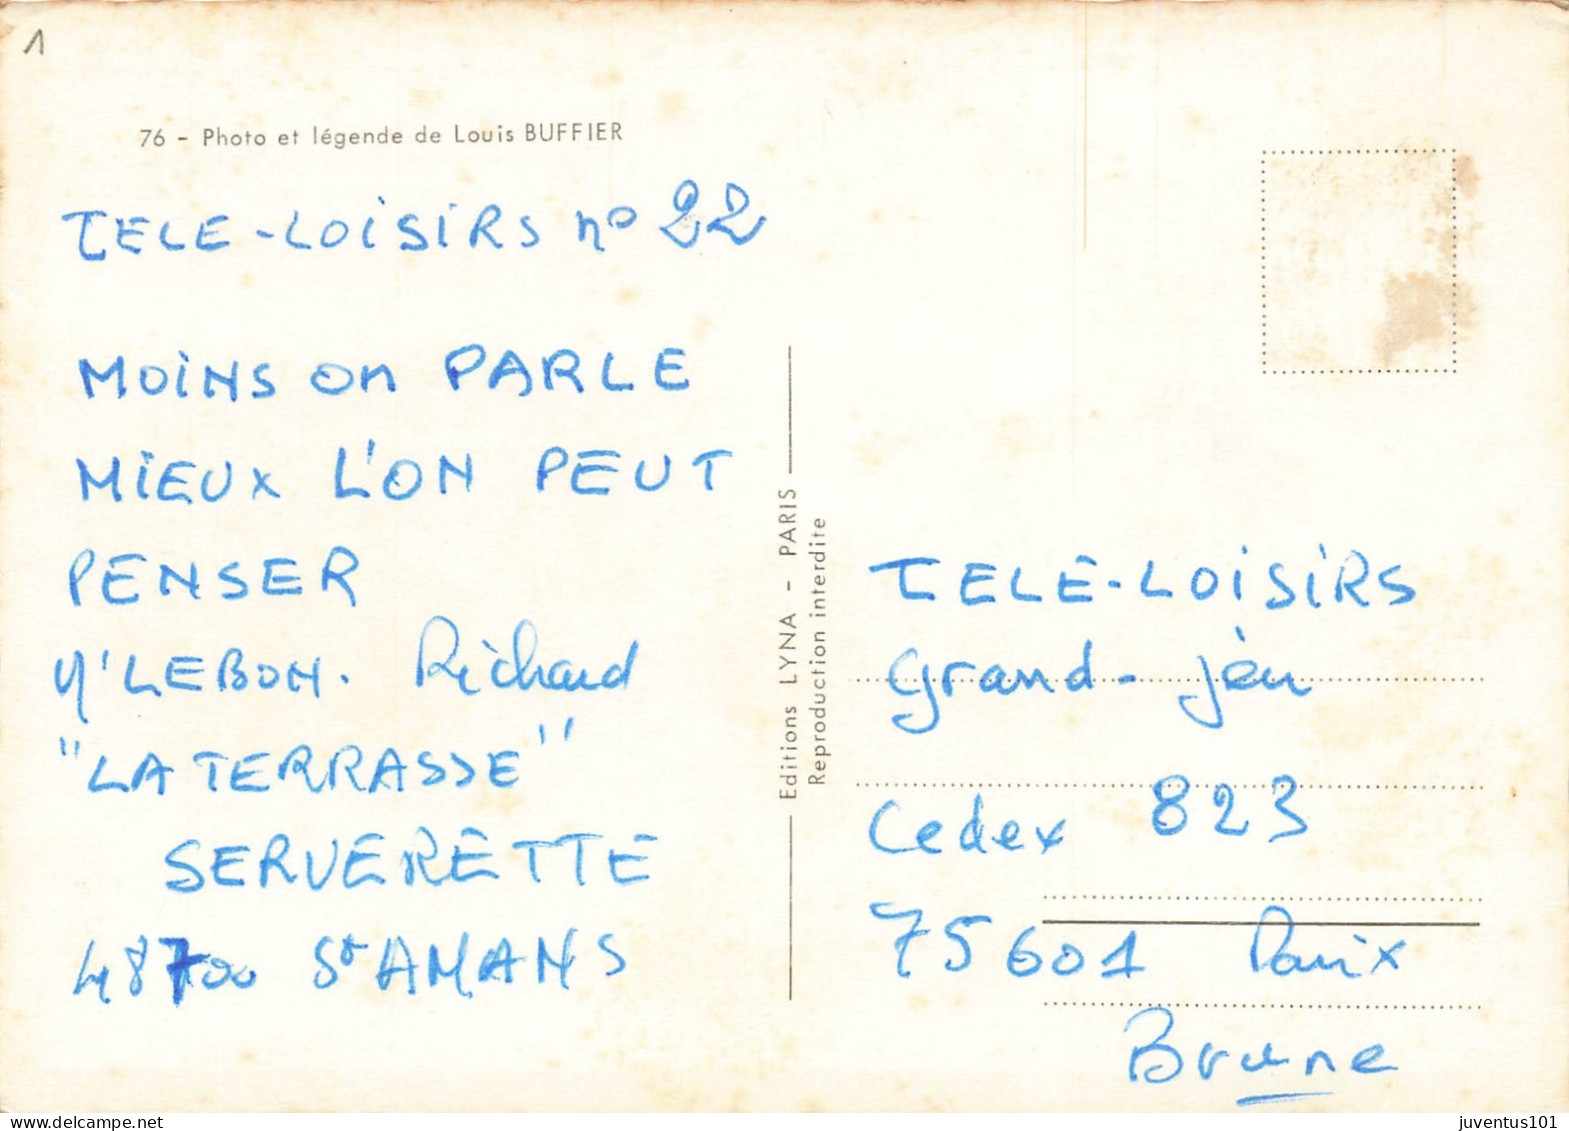 1
76 - Photo et légende de Louis BUFFIER
TELE-LOiSiRS n° 22
MOiNS On PARLE
MiEUX L'ON PEUT
PENSER
LEBON. Richard
"LA TERRASSE"
SERVERETTE
48700 St AMANS
Editions LYNA - PARIS
Reproduction interdite
TELE-LOiSiRS
Grand-jeu
Cedex 823
75601 Paris
Brune
juventus101